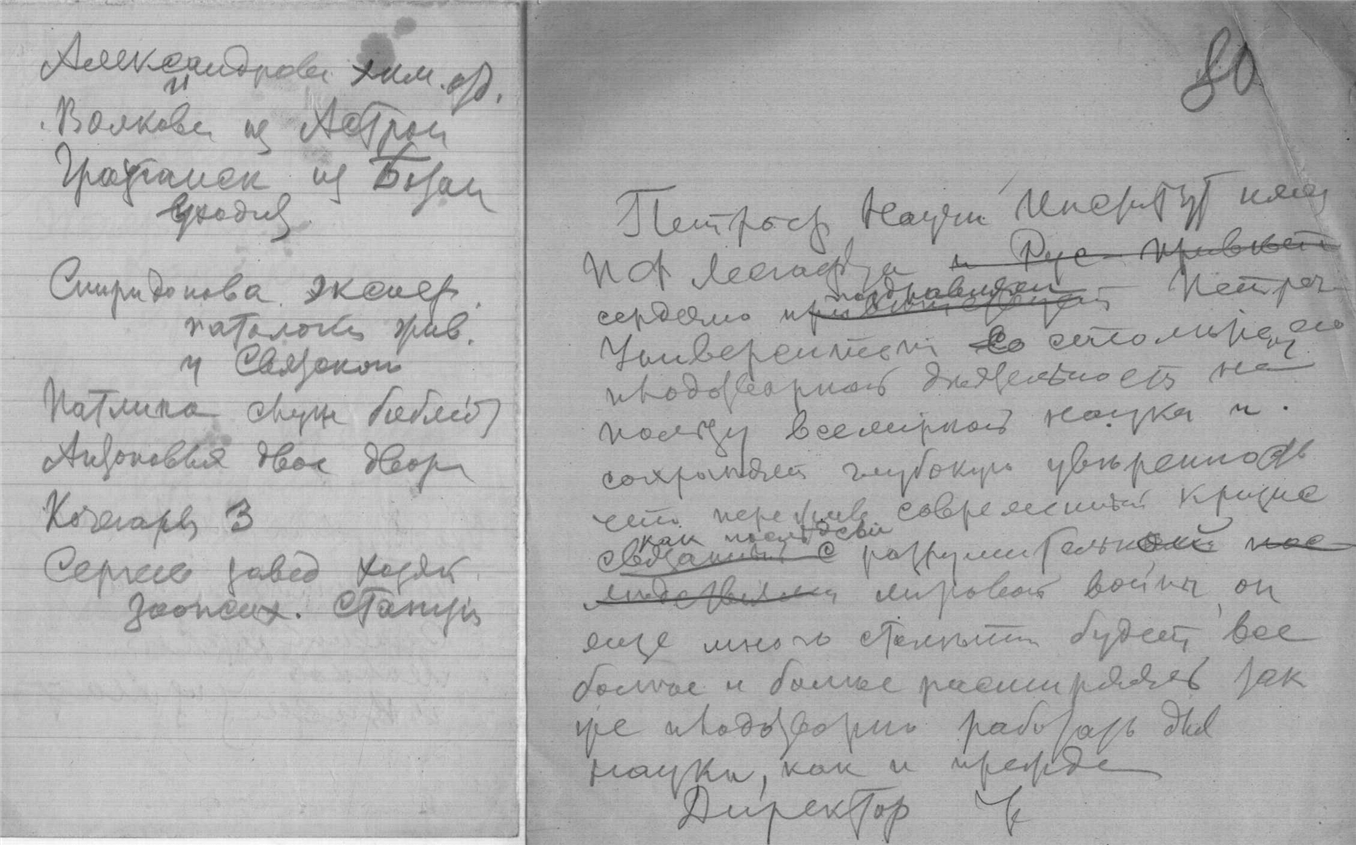 Александрова хим. од.
и
Волкова из Астрон
из Ботан
Спиридонова экспер.
патологи
и Связской
Патлина служ библиот
двое двор
Кочегары 3
Сергеев завед хозяй
зоопсих. станци
80
Петрогр Научн Институт имен
Лесгафта и Рус
сердечно поздравляет Петрогр
Университет со столетнею
плодотворной деятельность на
пользу всемирной наука и
сохраняет глубокую увѣренность
что современный кризис
как последствие
связанный с разрушительной пос
ледствиями мировой войны, он
еще много столетий будет все
более и более расширяясь так
же плодотворно работать для
науки, как и прежде
Директор